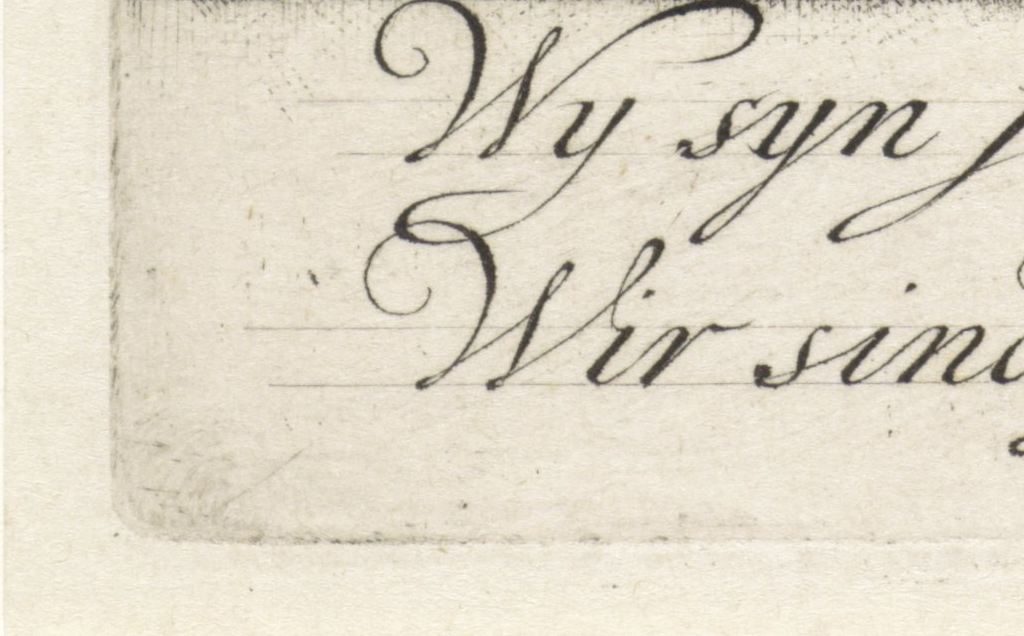 Wy syn
Wir sind